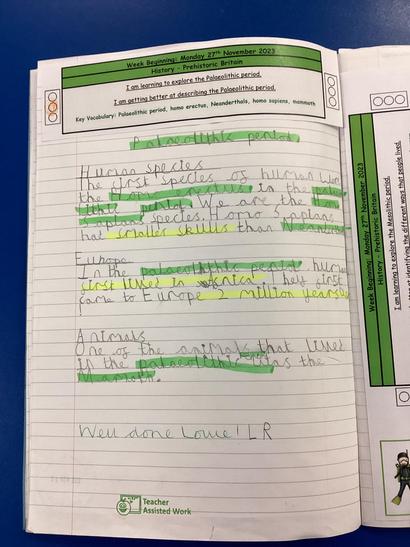 Week Beginning: Monday 27th November 2023
History - Prehistoric Britain
I am learning to explore the Palaeolithic period.
I am getting better at describing the Palaeolithic period.
Key Vocabulary: Palaeolithic period, homo erectus, Neanderthals, homo sapiens, mammoth
Palaeolithic period
Human species
The first species of human were
the Homo erectus in the
period. We are the
species. Homo Sapians
has smaller skulls than
Europe
In the palaeolithic period, human
first lived in Africa. They first
came to Europe 2 million years
Animals
One of the animals that lived
in the palaeolithic was the
Mamoth.
Well done Louie! LR
Teacher
Assisted Work
Week Beginning: Monday 27th November 2023
History - Prehistoric Britain
I am learning to explore the Mesolithic period.
identifying the different ways that people lived.